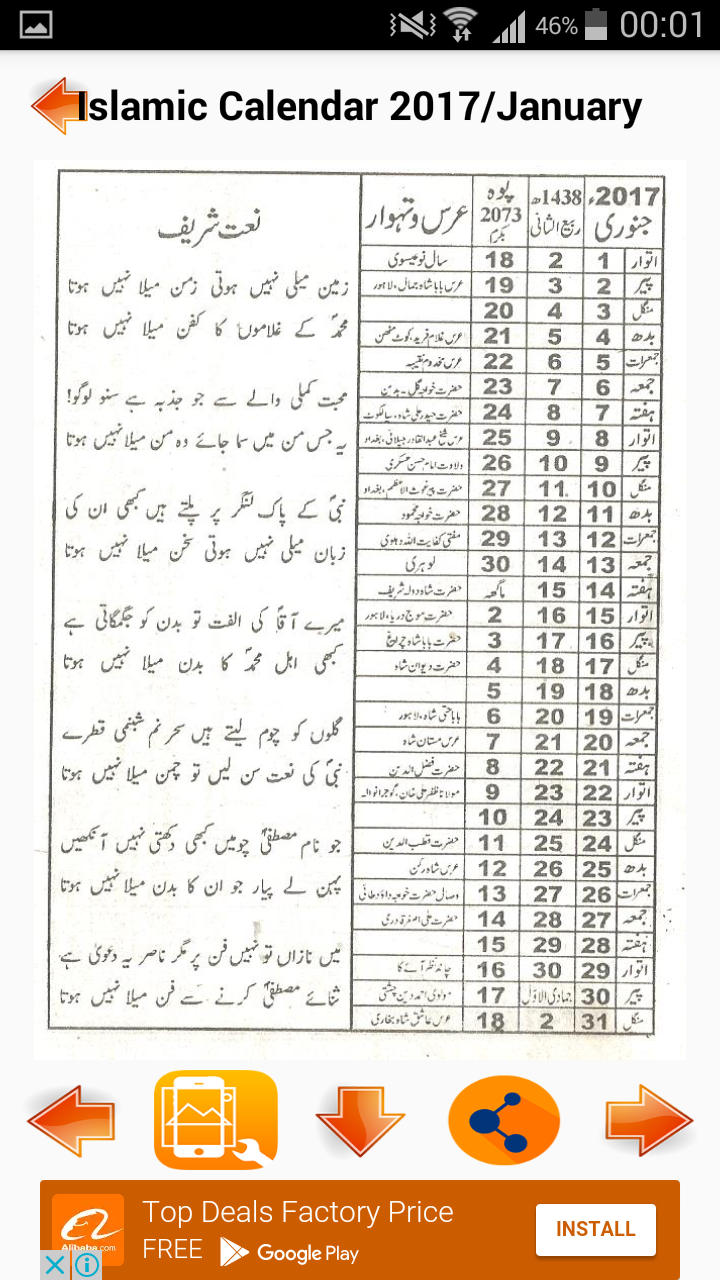 46% 00:01
Islamic Calendar 2017/January
2017ء 1438ھ پوہ عرس و تہوار نعت شریف
جنوری ربیع الثانی 2073
اتوار 1 2 18 سال نو عیسوی
پیر 2 3 19 عرس بابا شاہ جمال، لاہور
منگل 3 4 20
بدھ 4 5 21 عرس غلام فرید، کوٹ مٹھن
جمعرات 5 6 22 عرس مخدوم
جمعہ 6 7 23 حضرت خواجہ گل۔ بدین
ہفتہ 7 8 24 حضرت حیدر علی شاہ، سیالکوٹ
اتوار 8 9 25 عرس شیخ عبدالقادر جیلانی، بغداد
پیر 9 10 26 ولادت امام حسن عسکری
منگل 10 11 27 حضرت پیر غوث الاعظم، بغداد
بدھ 11 12 28 حضرت خواجہ محمود
جمعرات 12 13 29 مفتی کفایت اللہ دہلوی
جمعہ 13 14 30 لوہری
ہفتہ 14 15 ماگھ حضرت شاہ دولہ شریف
اتوار 15 16 2 حضرت موج دریا، لاہور
پیر 16 17 3 حضرت بابا شاہ چراغ
منگل 17 18 4 حضرت دیوان شاہ
بدھ 18 19 5
جمعرات 19 20 6 بابا حتی شاہ، لاہور
جمعہ 20 21 7 عرس مستان شاہ
ہفتہ 21 22 8 حضرت فضل الدین
اتوار 22 23 9 مولانا ظفر علی خان، گوجرانوالہ
پیر 23 24 10
منگل 24 25 11 حضرت قطب الدین
بدھ 25 26 12 عرس شاہ رکن
جمعرات 26 27 13 وصال حضرت خواجہ داؤد طائی
جمعہ 27 28 14 حضرت علی اصغر قادری
ہفتہ 28 29 15
اتوار 29 30 16 چاند نظر آئے گا
پیر 30 جمادی الاوّل 17 مولوی احمد دین چشتی
منگل 31 2 18 عرس عاشق شاہ بخاری
زمین میلی نہیں ہوتی زمن میلا نہیں ہوتا
محمدؐ کے غلاموں کا کفن میلا نہیں ہوتا
محبت کملی والے سے جو جذبہ ہے سنو لوگو!
یہ جس من میں سما جائے وہ من میلا نہیں ہوتا
نبیؐ کے پاک لنگر پر پلتے ہیں کبھی ان کی
زبان میلی نہیں ہوتی سخن میلا نہیں ہوتا
میرے آقاؐ کی الفت تو بدن کو جگمگاتی ہے
کبھی اہل محمدؐ کا بدن میلا نہیں ہوتا
گلوں کو چوم لیتے ہیں سحر نم شبنمی قطرے
نبیؐ کی نعت سن لیں تو چمن میلا نہیں ہوتا
جو نام مصطفیٰؐ چومیں کبھی دکھتی نہیں آنکھیں
پہن لے پیار جو ان کا بدن میلا نہیں ہوتا
میں نازاں تو نہیں فن پر مگر ناصر یہ دعویٰ ہے
ثنائے مصطفیٰؐ کرنے سے فن میلا نہیں ہوتا
Top Deals Factory Price
FREE Google Play
INSTALL
Alibaba.com